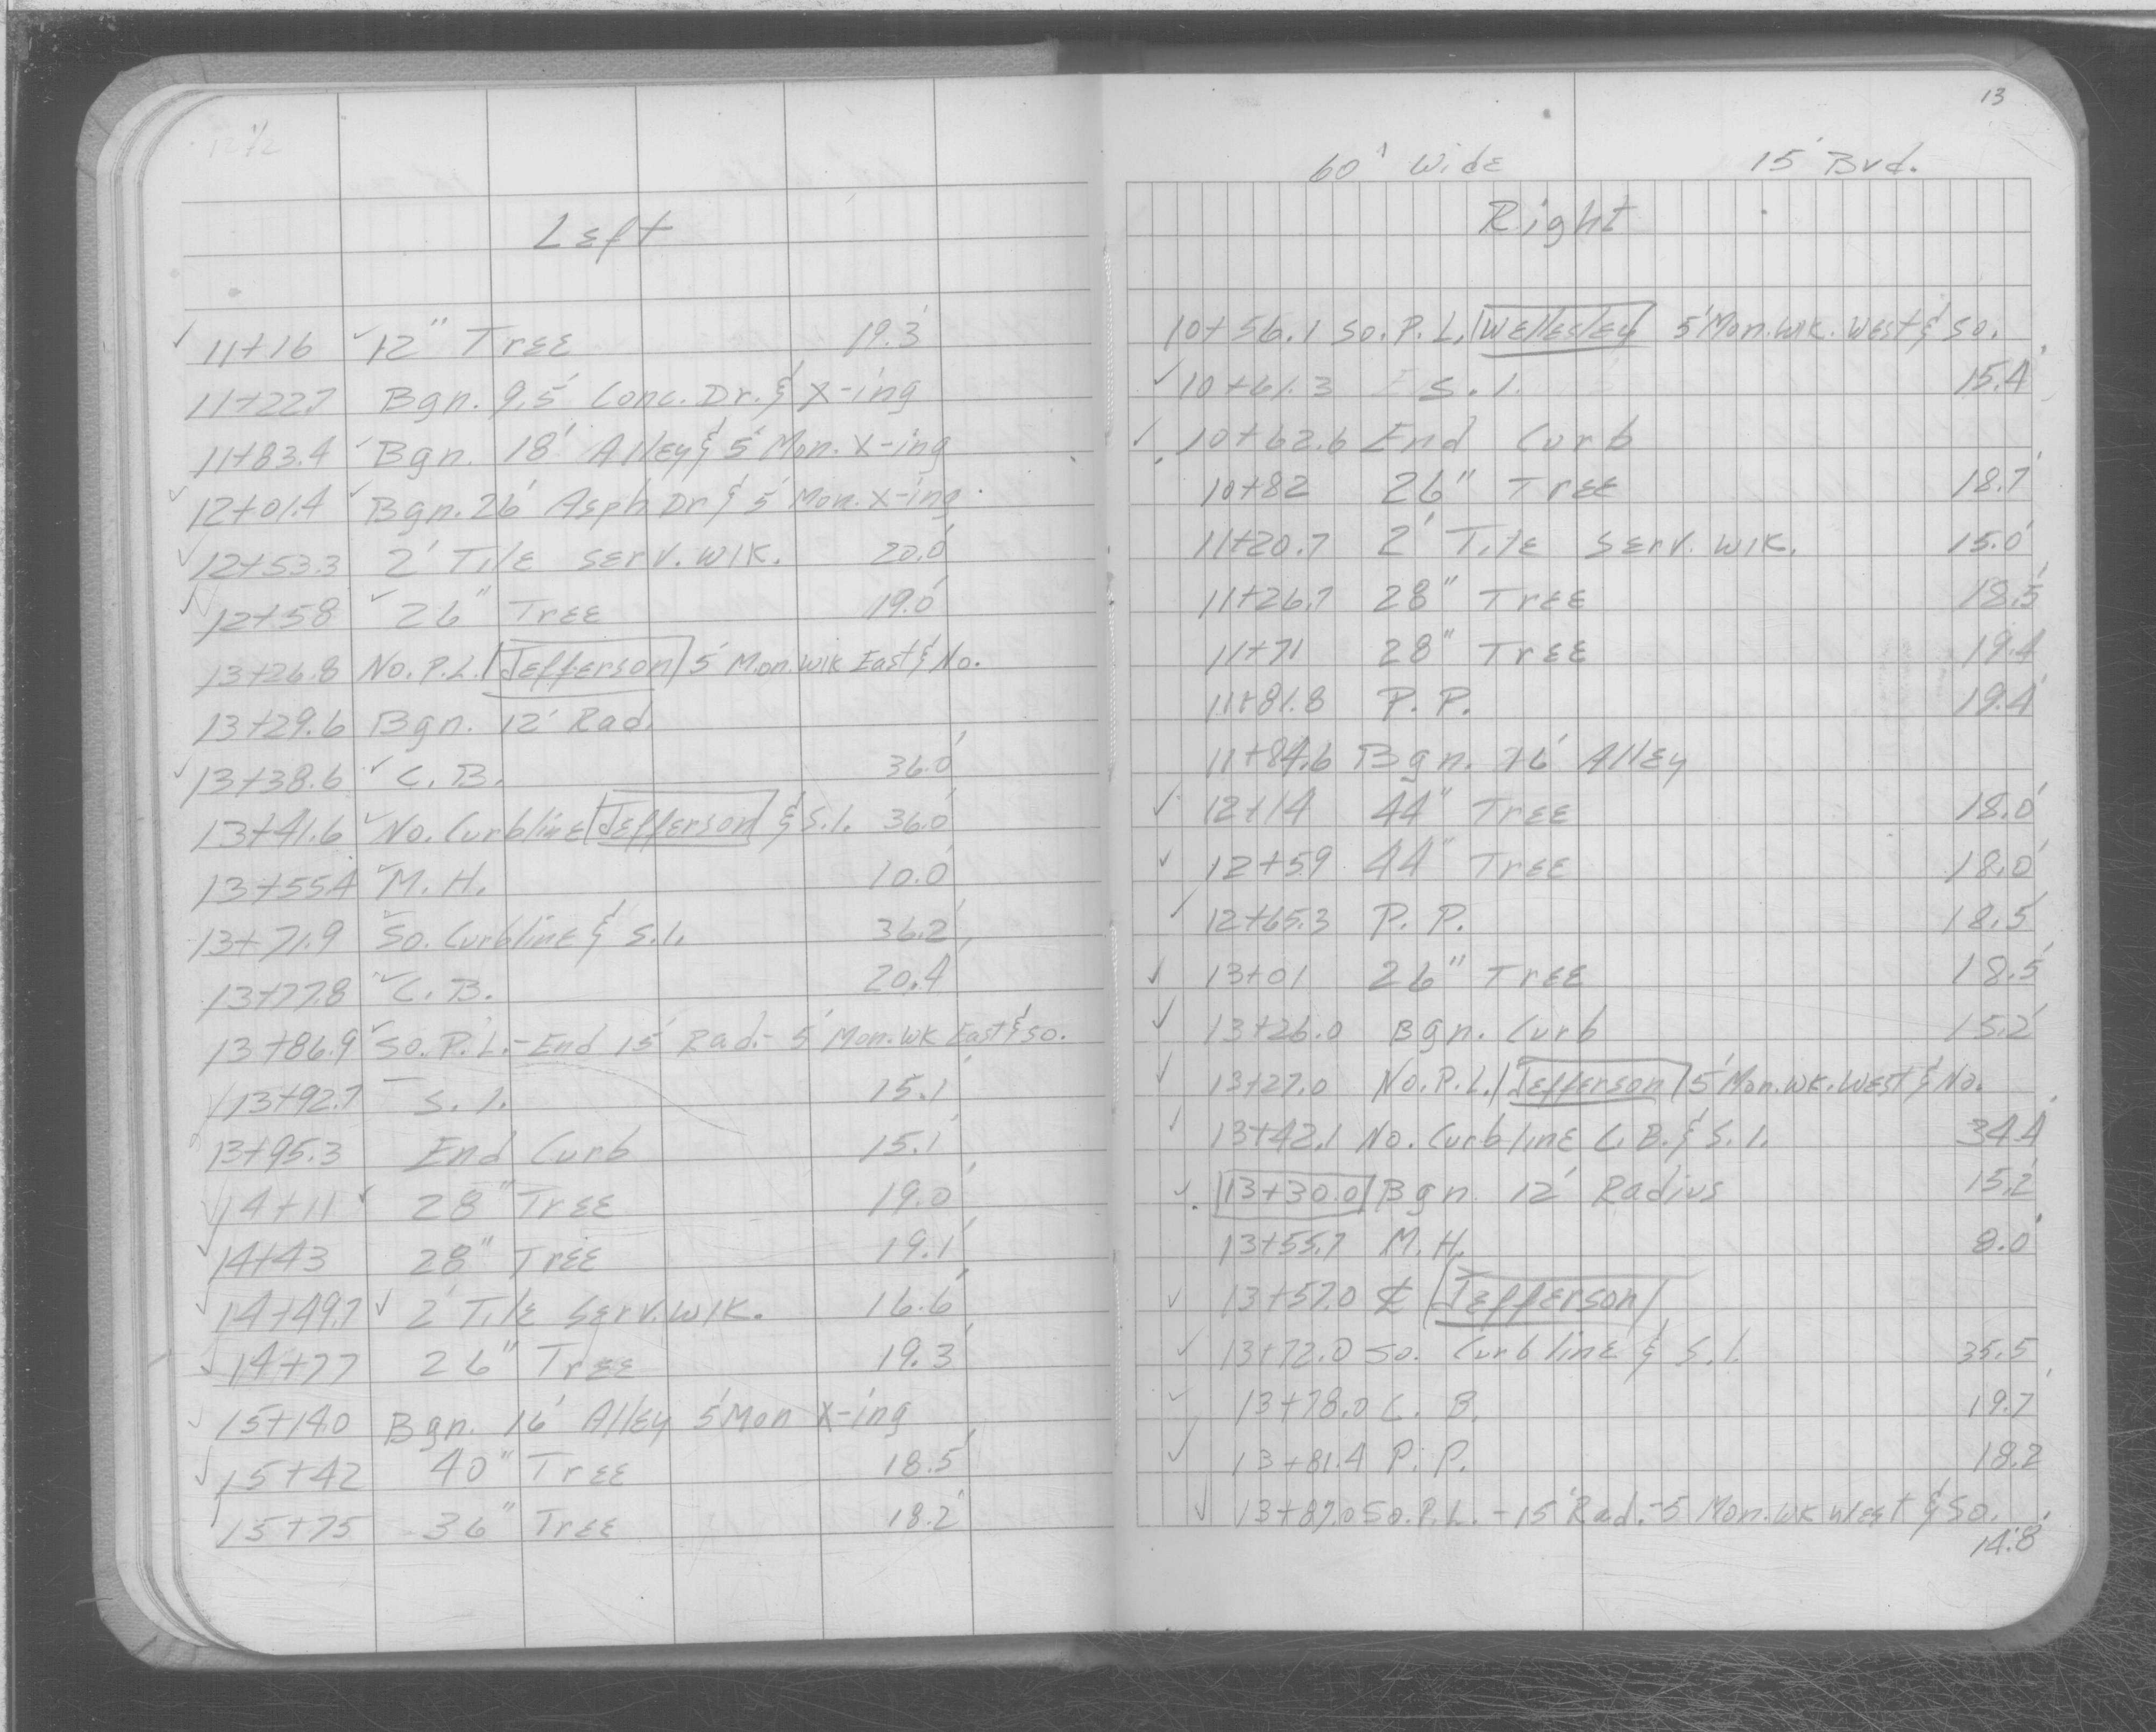 12 1/2
Left
11+16 12" Tree 19.3'
11+22.7 Bgn. 9.5' Conc. Dr. & X-ing
11+83.4 Bgn. 18' Alley & 5' Mon. X-ing
12+01.4 Bgn. 26' Asph Dr & 5' Mon. X-ing
12+53.3 2' Tile Serv. Wlk. 20.0'
12+58 26" Tree 19.0'
13+26.8 No. P.L. Jefferson 5' Mon. Wlk East & No.
13+29.6 Bgn. 12' Rad.
13+38.6 C. B. 36.0'
13+41.6 No. Curbline Jefferson & S.I. 36.0'
13+55.4 M. H. 10.0'
13+71.9 So. Curbline & S.I. 36.2'
13+77.8 C. B. 20.4'
13+86.9 So. P.L. - End 15' Rad. - 5' Mon. Wk East & So.
13+92.7 S. I. 15.1'
13+95.3 End Curb 15.1'
14+11 28" Tree 19.0'
14+43 28" Tree 19.1'
14+49.7 2' Tile Serv. Wlk. 16.6'
14+77 26" Tree 19.3'
15+14.0 Bgn. 16' Alley 5' Mon X-ing
15+42 40" Tree 18.5'
15+75 36" Tree 18.2'
13
60' Wide 15' Bvd.
Right
10+56.1 So. P. L. Wellesley 5' Mon. Wk. West & So.
10+61.3 S. I. 15.4'
10+62.6 End Curb
10+82 26" Tree 18.7'
11+20.7 2' Tile Serv. Wlk. 15.0'
11+26.7 28" Tree 18.5'
11+71 28" Tree 19.4'
11+81.8 P. P. 19.4'
11+84.6 Bgn. 16' Alley
12+14 44" Tree 18.0'
12+59 44" Tree 18.0'
12+65.3 P. P. 18.5'
13+01 26" Tree 18.5'
13+26.0 Bgn. Curb 15.2'
13+27.0 No. P. L. Jefferson 5' Mon. Wk. West & No.
13+42.1 No. Curb line C. B. & S. I. 34.4'
13+30.0 Bgn 12' Radius 15.2'
13+55.7 M. H. 8.0'
13+57.0 ℄ Jefferson
13+72.0 So. Curb line & S.I. 35.5'
13+78.0 C. B. 19.7'
13+81.4 P. P. 18.2
13+87.0 So. P.L. - 15' Rad. - 5' Mon. Wk West & So.
14.8'